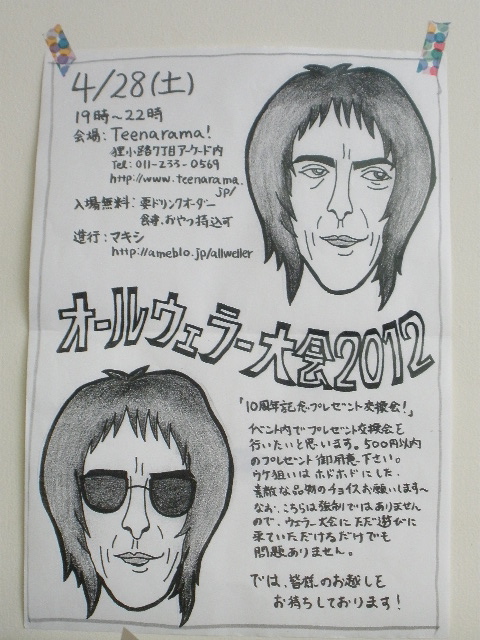 4/28(土)
19時〜22時
会場:Teenarama!
狸小路7丁目アーケード内
Tel:011-233-0569
http://www.teenarama.
jp/
入場無料:要ドリンクオーダー
食事、おやつ持込可
進行:マキシ
http://ameblo.jp/allweller
オールウェラー大会2012
「10周年記念プレゼント交換会!」
イベント内でプレゼント交換会を
行いたいと思います。500円以内
のプレゼント御用意下さい。
ウケ狙いはホドホドにした、
素敵な品物のチョイスお願いします〜
なお、こちらは強制ではありません
ので、ウェラー大会にただ遊びに
来ていただけるだけでも
問題ありません。
では、皆様のお越しを
お待ちしております!